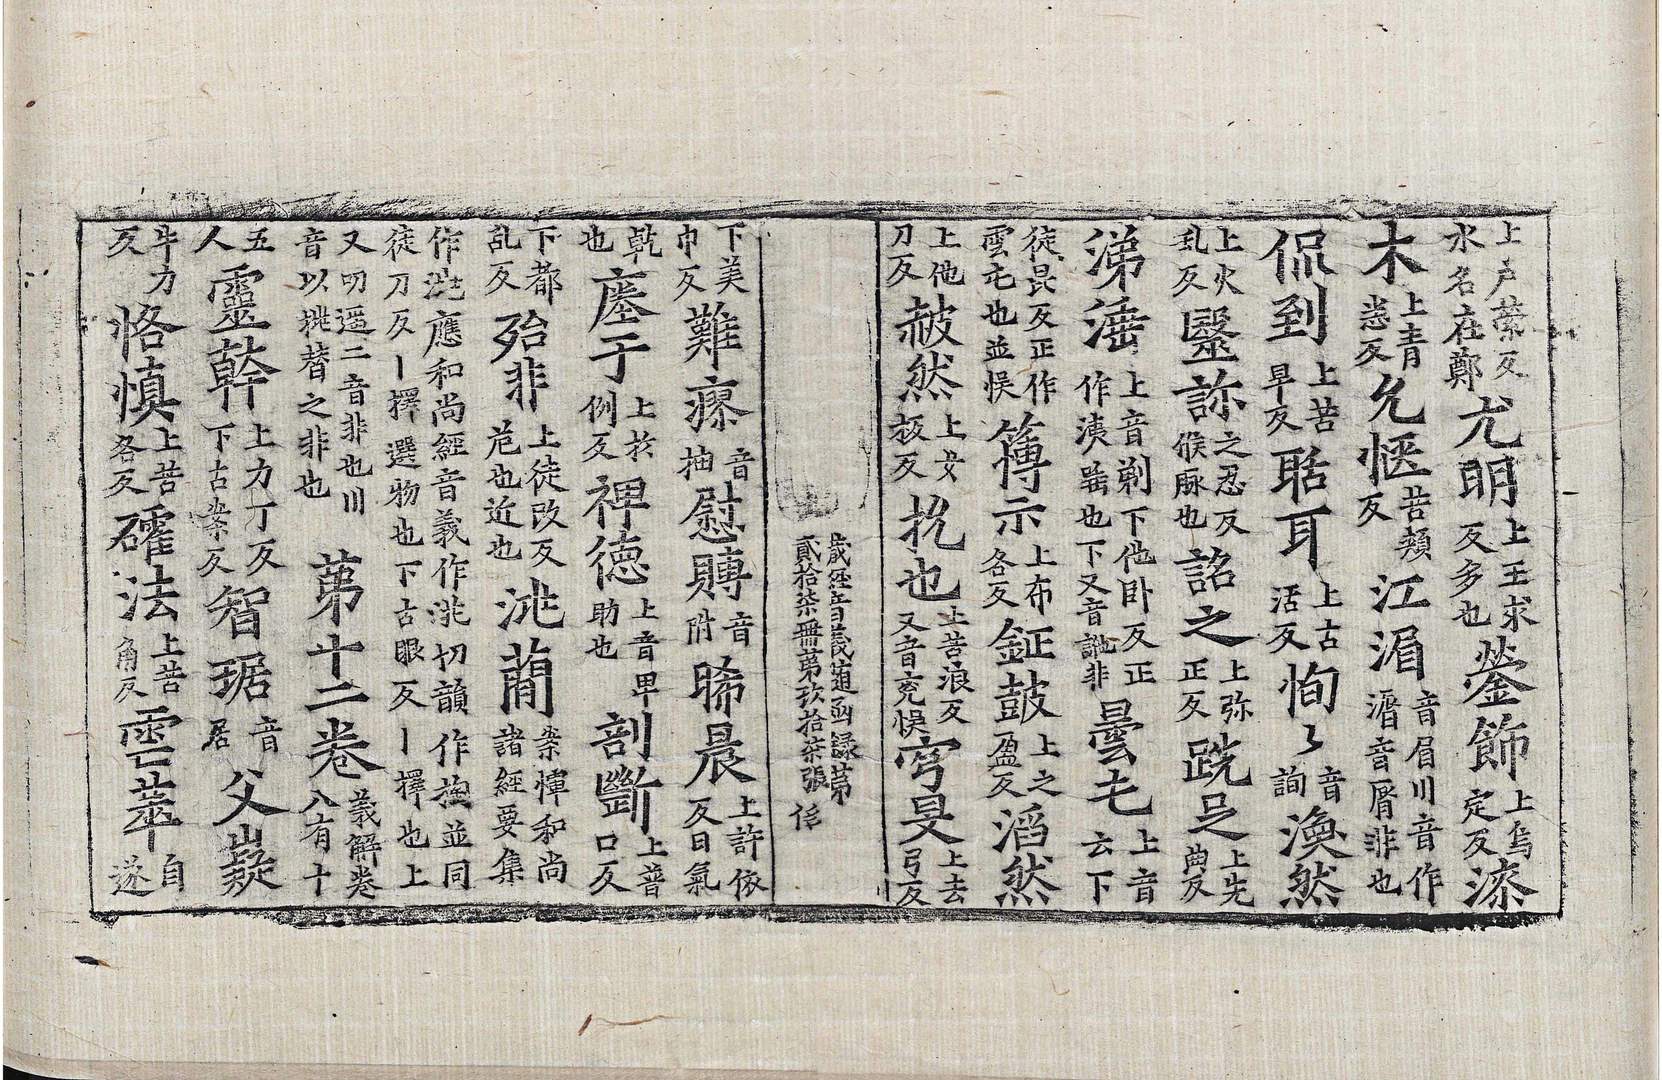 上戶榮反水名在鄭尤明上王求反多也鎣飾上烏定反漆
木上青悉反允愜苦頰反江湄音眉川音作湣音屑非也
侃到上苦旱反聒耳上古活反恂〻音詢渙然
上火乱反毉診之忍反候脉也詺之上弥正反跣足上先典反
涕涶上音剃下他卧反正作洟唾也下又音訑非曇乇上音云下
徒昆反正作雲屯也並悮簙示上布各反鉦鼓上之盈反滔然
上他刀反赧然上女板反抗也上苦浪反又音兖悮穹旻上去弓反
藏經音義隨函錄第貳拾柒冊第玖拾柒張 信
下美巾反難瘳音抽慰賻音附晞晨上許依反日氣
乹也于上於例反裨德上音卑助也剖斷上普口反
下都乱反殆非上徒改反危也近也洮蕳案惲和尚諸經要集
作應和尚經音義作洮切韻作並同徒刀反丨擇選物也下古眼反丨擇也上
又叨遥二音非也川音以挑替之非也 第十二卷義解卷八有十
五人靈幹上力丁反下古案反智琚音居父嶷
牛力反恪慎上苦各反礭法上苦角反雲萃自遂